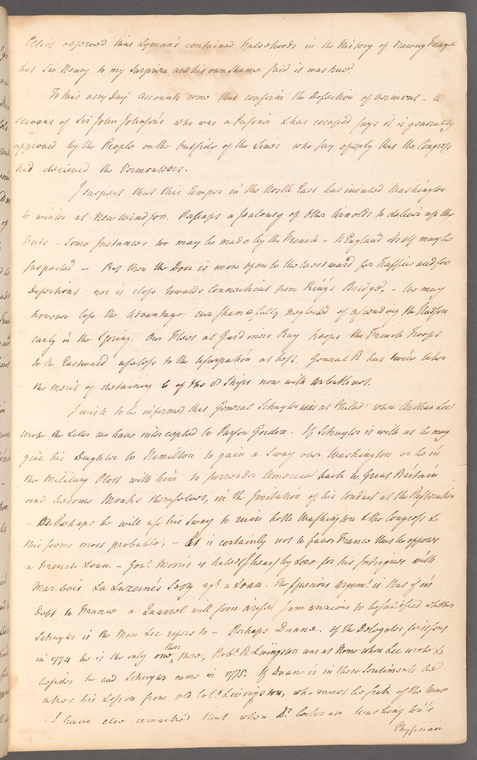 Ellis observed that Lyman's contained Falsehoods in the History of
but Sir Henry to my Surprize and his own Shame said it was true
To this very Day Accounts come that confirm the Defection of Vermont - a
Servant of Sir John Johnson's who was a Prisoner & has escaped says it is generally
approved by the People on the outside of the Lines who say openly that the Congress
had deceived the Vermonteers.
I suspect that this Temper in the North East has induced Washington
to winter at New Windsor. Perhaps a Jealousy of other Arnolds to deliver up the
Forts - Some Instances too may be made by the French - N England itself may be
suspected - But then the Door is more open to the Westward for Traffic and for
Defections nor is close towards Connecticut from Kings Bridge. - We may
however lose the Advantage we shamefully neglected of ascending the Hudson
early in the Spring. Our Fleet at Gardiners Bay keeps the French Troops
to the Eastward useless to the Usurpation at least. General R has
the Merit of detaining 6 of the 8 Ships now with Arbuthnot.
I wish to be informed that General Schuyler was at Philad: when Arthur Lee
wrote the Letter we have intercepted to Parson Gordon. If Schuyler is with us he may
give his Daughter to Hamilton to gain a Sway over Washington or be in
the Military Plot with him to surrender America back to Great Britain
and become Monks themselves, in the Imitation of his Conduct at the Restoration
- Or Perhaps he will use his Sway to ruin both Washington & the Congress &
this seems most probable, - It is certainly not to favor France that he opposes
a French Loan - Gov.r Morris is hated I hear by Lee for his Intrigues with
Marbois La Luzerne's Secy agt a Loan. The specious Argumt is that if in
Debt to France a Quarrel will soon arise I am anxious to be satisfied whether
Schuyler is the Man Lee refers to - Perhaps Duane. Of the Delegates for
in 1774 he is the only one then there, Robt R. Livingston was at Home when Lee wrote &
besides he and Schuyler came in 1775. If Duane is in these Sentiments he
takes his Lesson from old Coll Livingston, who must be sick of the Times
I have also remarked that when Dr Cochran Washington's
Physician